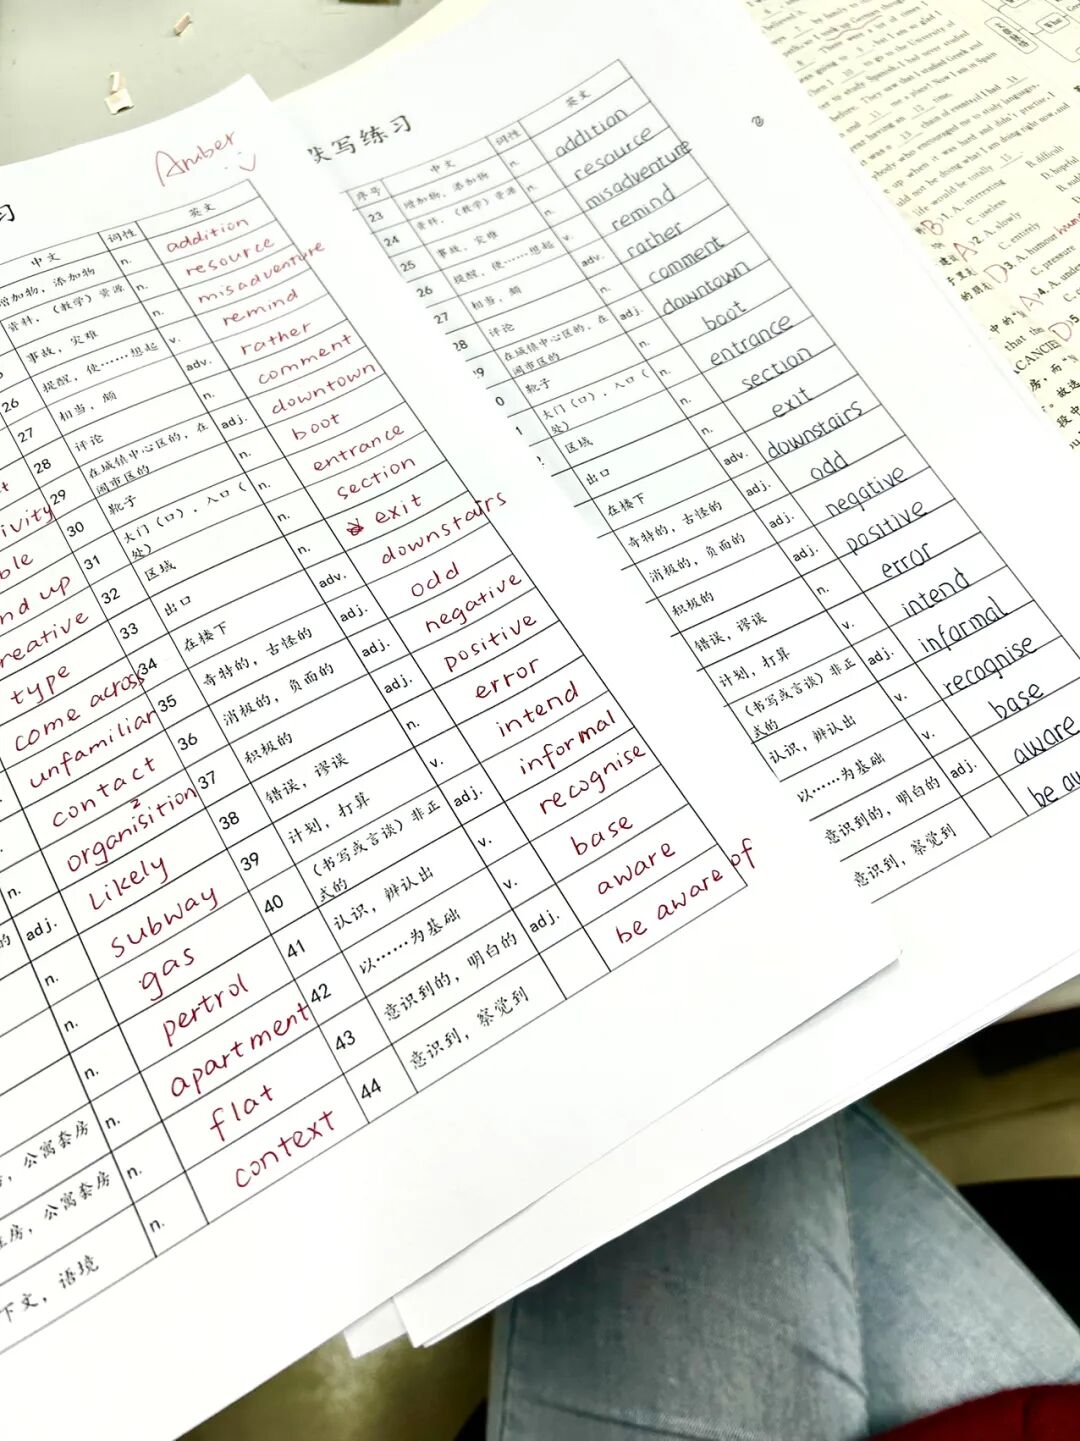 Amber
习
中文 词性 英文
增加物，添加物 n. addition
资料，（教学）资源 n. resource
事故，灾难 n. misadventure
26 提醒，使……想起 v. remind
27 相当，颇 adv. rather
28 评论 n. comment
29 在城镇中心区的，在闹市区的 adj. downtown
30 靴子 n. boot
31 大门（口），入口（处） n. entrance
32 区域 n. section
33 出口 n. exit
34 在楼下 adv. downstairs
35 奇特的，古怪的 adj. odd
36 消极的，负面的 adj. negative
37 积极的 adj. positive
38 错误，谬误 n. error
39 计划，打算 v. intend
40 （书写或言谈）非正式的 adj. informal
41 认识，辨认出 v. recognise
42 以……为基础 v. base
43 意识到的，明白的 adj. aware
44 意识到，察觉到 be aware of
ivity
ble
nd up
reative
type
come across
unfamiliar
contact
n. organisition
adj. likely
n. subway
n. gas
n. pertrol
公寓套房 n. apartment
房，公寓套房 n. flat
下文，语境 n. context
写练习
序号 中文 词性 英文
23 增加物，添加物 n. addition
24 资料，（教学）资源 n. resource
25 事故，灾难 n. misadventure
26 提醒，使……想起 v. remind
27 相当，颇 adv. rather
28 评论 n. comment
9 在城镇中心区的，在闹市区的 adj. downtown
0 靴子 n. boot
1 大门（口），入口（处） n. entrance
区域 n. section
出口 n. exit
在楼下 adv. downstairs
奇特的，古怪的 adj. odd
消极的，负面的 adj. negative
积极的 adj. positive
错误，谬误 n. error
计划，打算 v. intend
（书写或言谈）非正式的 adj. informal
认识，辨认出 v. recognise
以……为基础 v. base
意识到的，明白的 adj. aware
意识到，察觉到 be aw
to study Spanish. I had never studied
before. They saw that I studied Greek and
me a place! Now I am in Spain
chain of events: if I had 11
who encouraged me to study languages,
up when it was hard and didn't practise, I
not be doing what I am doing right now, and
life would be totally 15
B 1. A. interesting B. difficult
C. useless
A 2. A. slowly B. hopeful
C. entirely
D 3. A. humour
C. pressure
A 4. A.
D 5